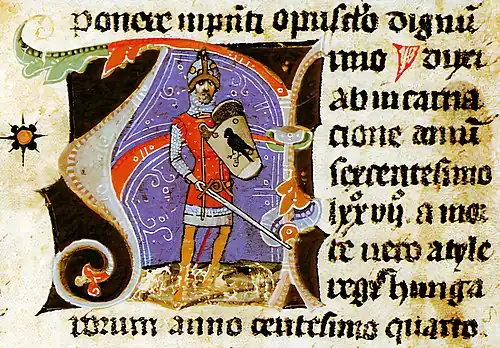 ponere in p̄nti opusc̄lo dignū
imo dyci
ab incarna
cione anniī
sexcentesimo
lxx vij. a mor
te uero atyle
regis hunga
rorum anno centesimo quarto.